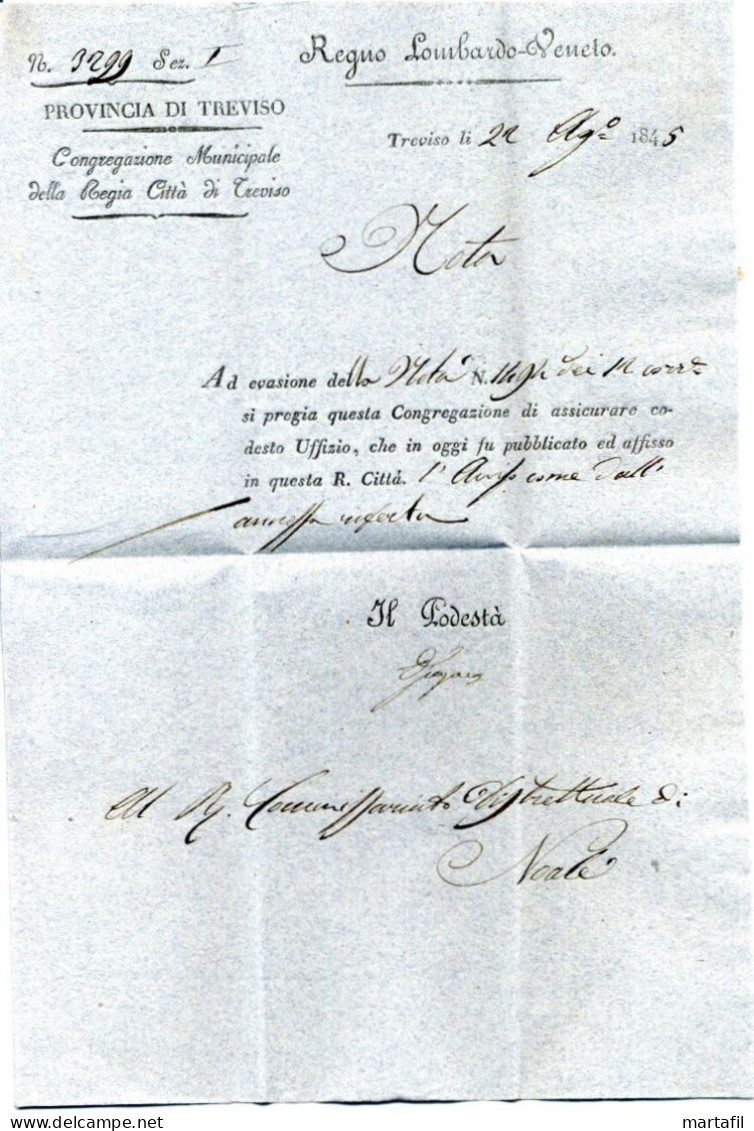 Regno Lombardo-Veneto.
N. 3299 Sez. I
PROVINCIA DI TREVISO
Congregazione Municipale
della Regia Città di Treviso
Treviso li 22 Ag.º 1845
Nota
Ad evasione della Nota N. dei 12 corr.e
si pregia questa Congregazione di assicurare co-
desto Uffizio, che in oggi fu pubblicato ed affisso
in questa R. Città. l' Avviso come dall'
annessa referta
Il Podestà
Al R. Commissariato Distrettuale di
Noale
martafil